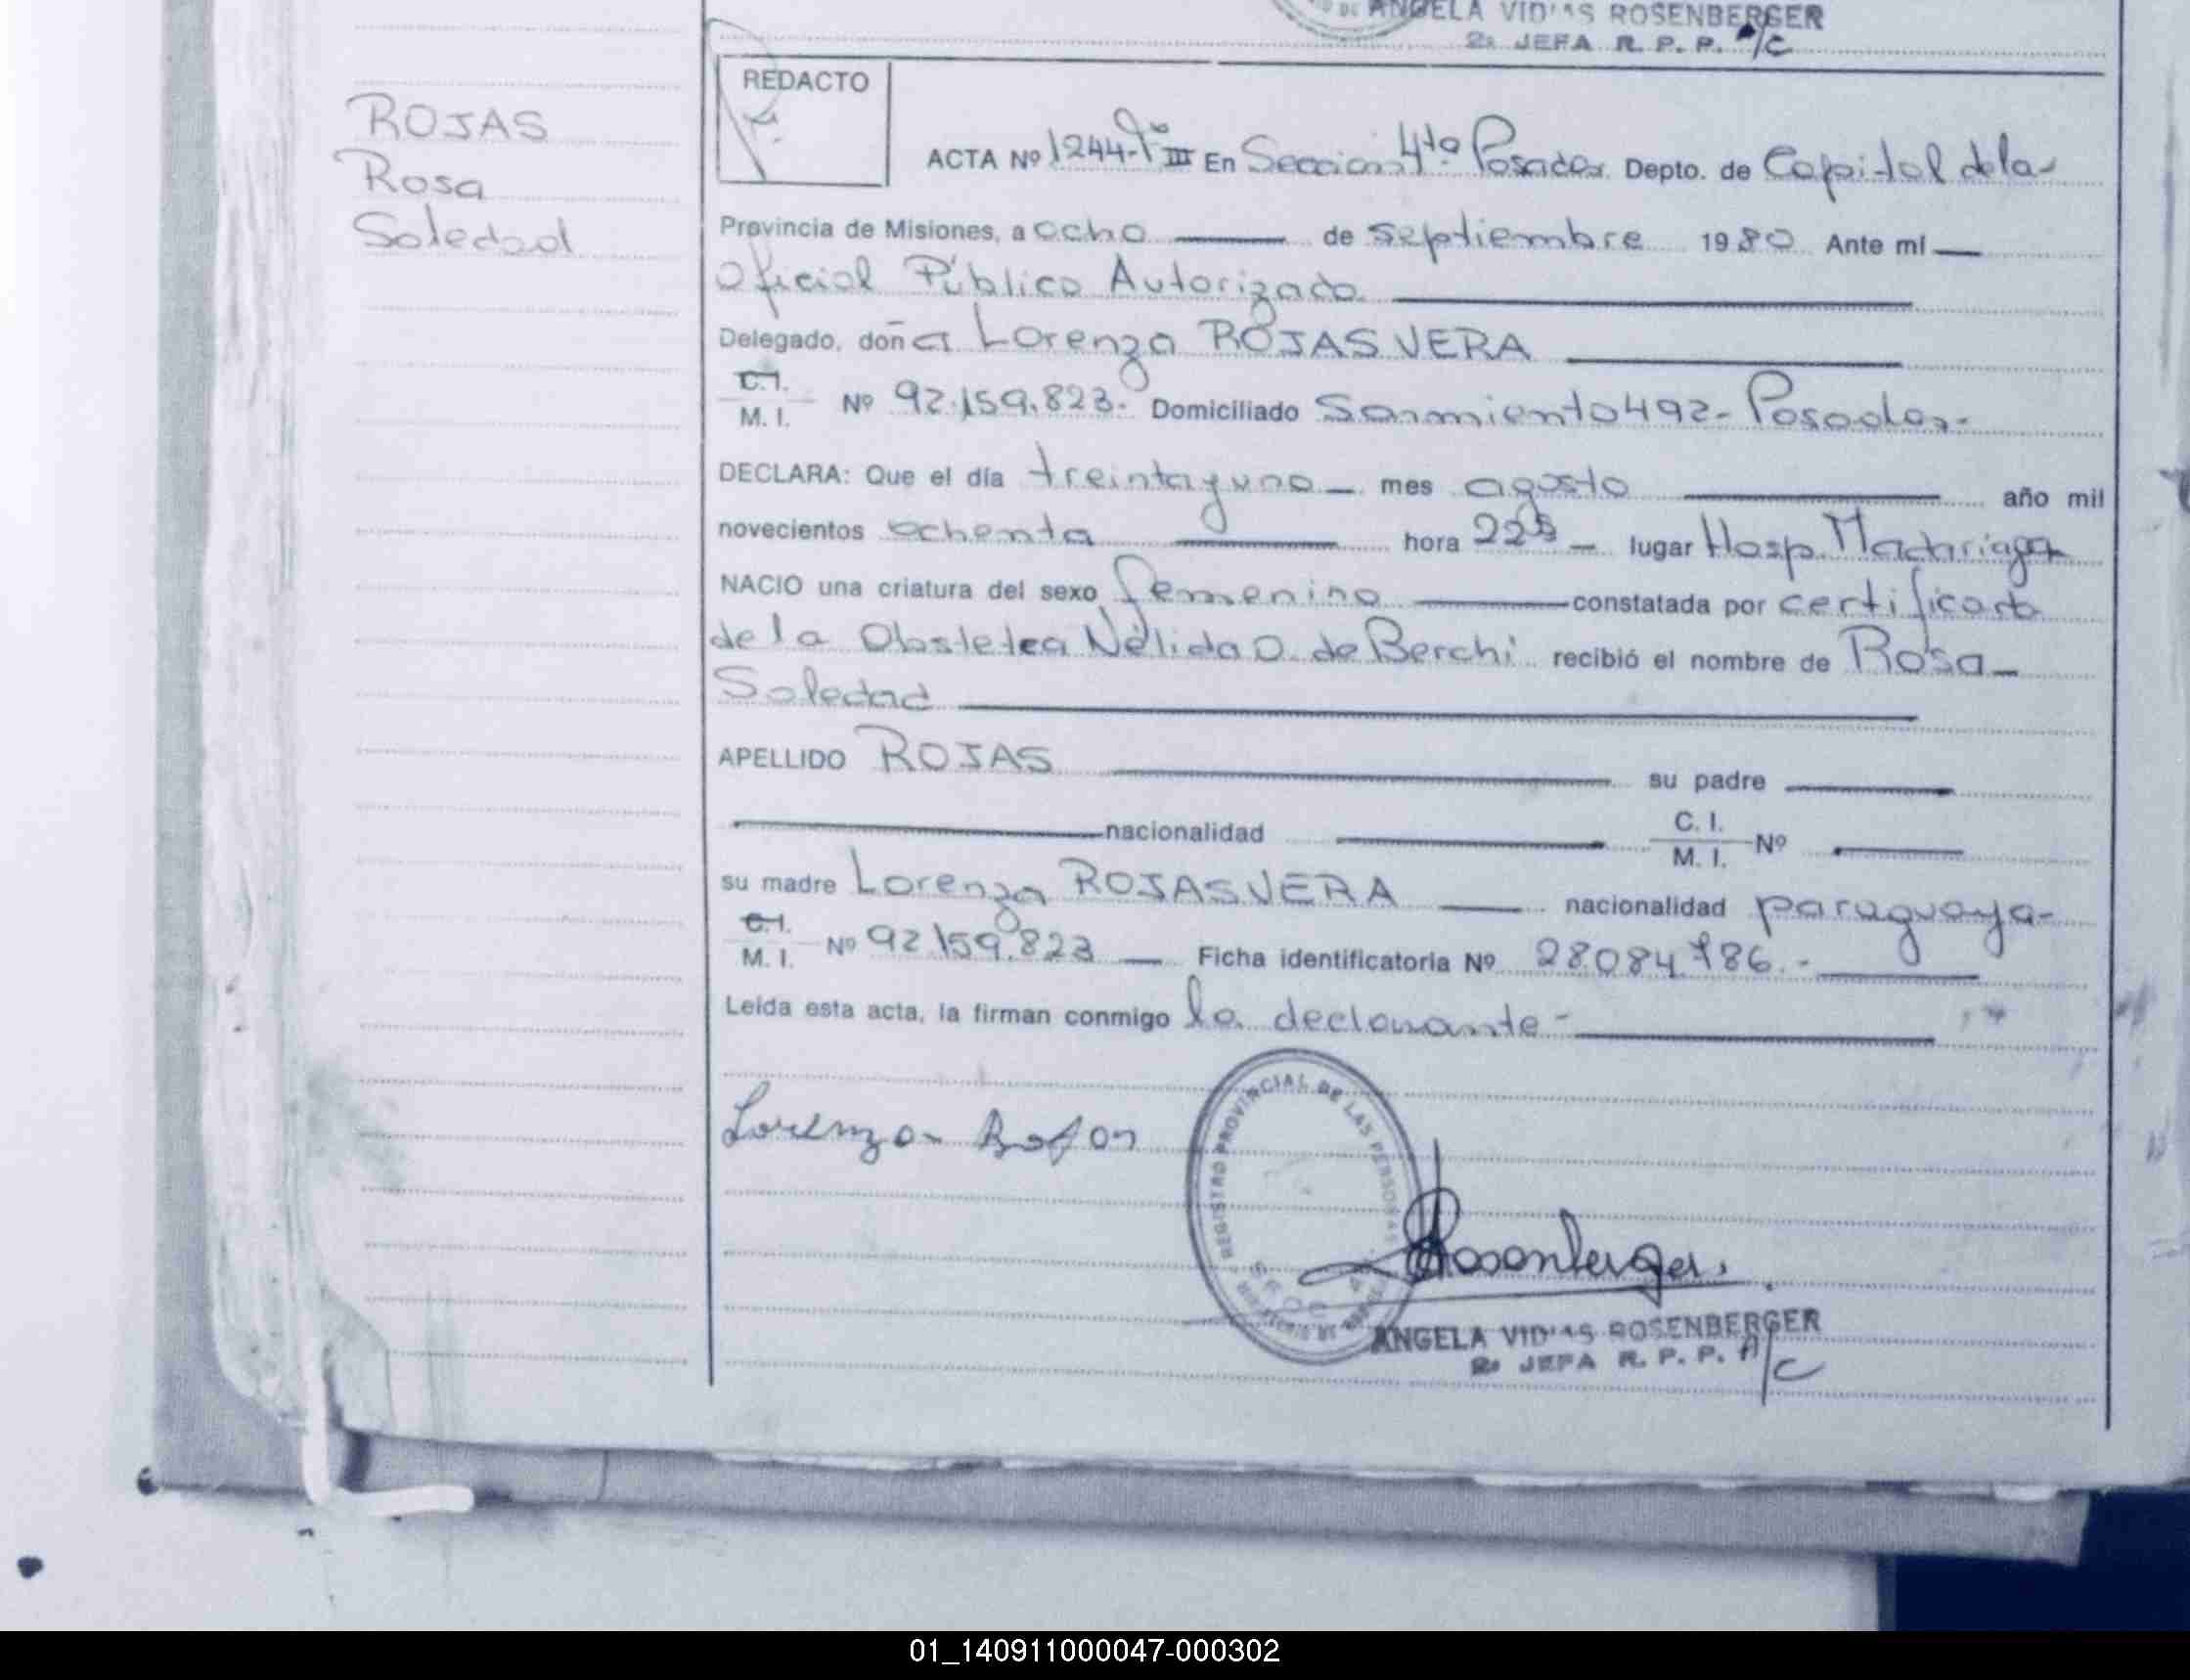 ANGELA VID'AS ROSENBERGER
2a JEFA R. P. P. A/C
REDACTO
ROJAS
Rosa
Soledad
ACTA Nº 1244-Tº III En Seccion 4ta Posadas Depto. de Capital de la-
Provincia de Misiones, a ocho de septiembre 1980 Ante mí
Oficial Público Autorizado
Delegado, doña Lorenza ROJAS VERA
C.I.
M. I. Nº 92.159.823.- Domiciliado Sarmiento 492- Posadas.-
DECLARA: Que el día treinta y uno mes agosto año mil
novecientos ochenta hora 22 lugar Hosp. Madariaga
NACIO una criatura del sexo femenino constatada por certificado
de la Obstetra Nélida O. de Berchi recibió el nombre de Rosa
Soledad
APELLIDO ROJAS su padre
nacionalidad C. I.
M. I. Nº
su madre Lorenza ROJAS VERA nacionalidad paraguaya-
C.I.
M. I. Nº 92.159.823 Ficha identificatoria Nº 28.084.786.-
Leída esta acta, la firman conmigo la declarante-
Lorenza Rojas
REGISTRO PROVINCIAL DE LAS PERSONAS
Rosenberger.
ANGELA VID'AS ROSENBERGER
2a JEFA R. P. P. A/C
01_140911000047-000302